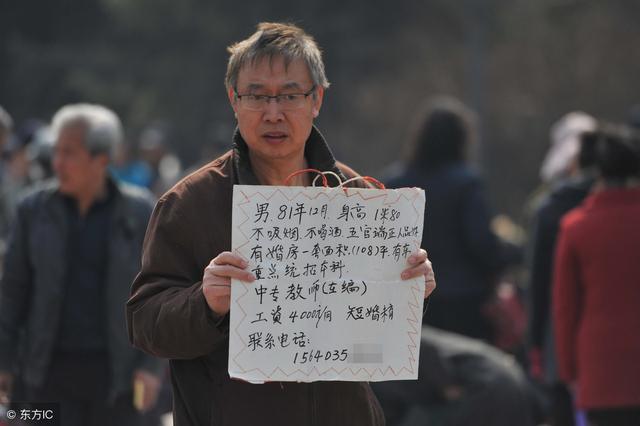 男. 81年12月. 身高 1米80
不吸烟. 不喝酒. 五官端正人品好
有婚房一套面积.(108)平.有车
重点统招本科.
中专教师(在编)
工资4000元/月 短婚
联系电话:
1564035
© 东方IC